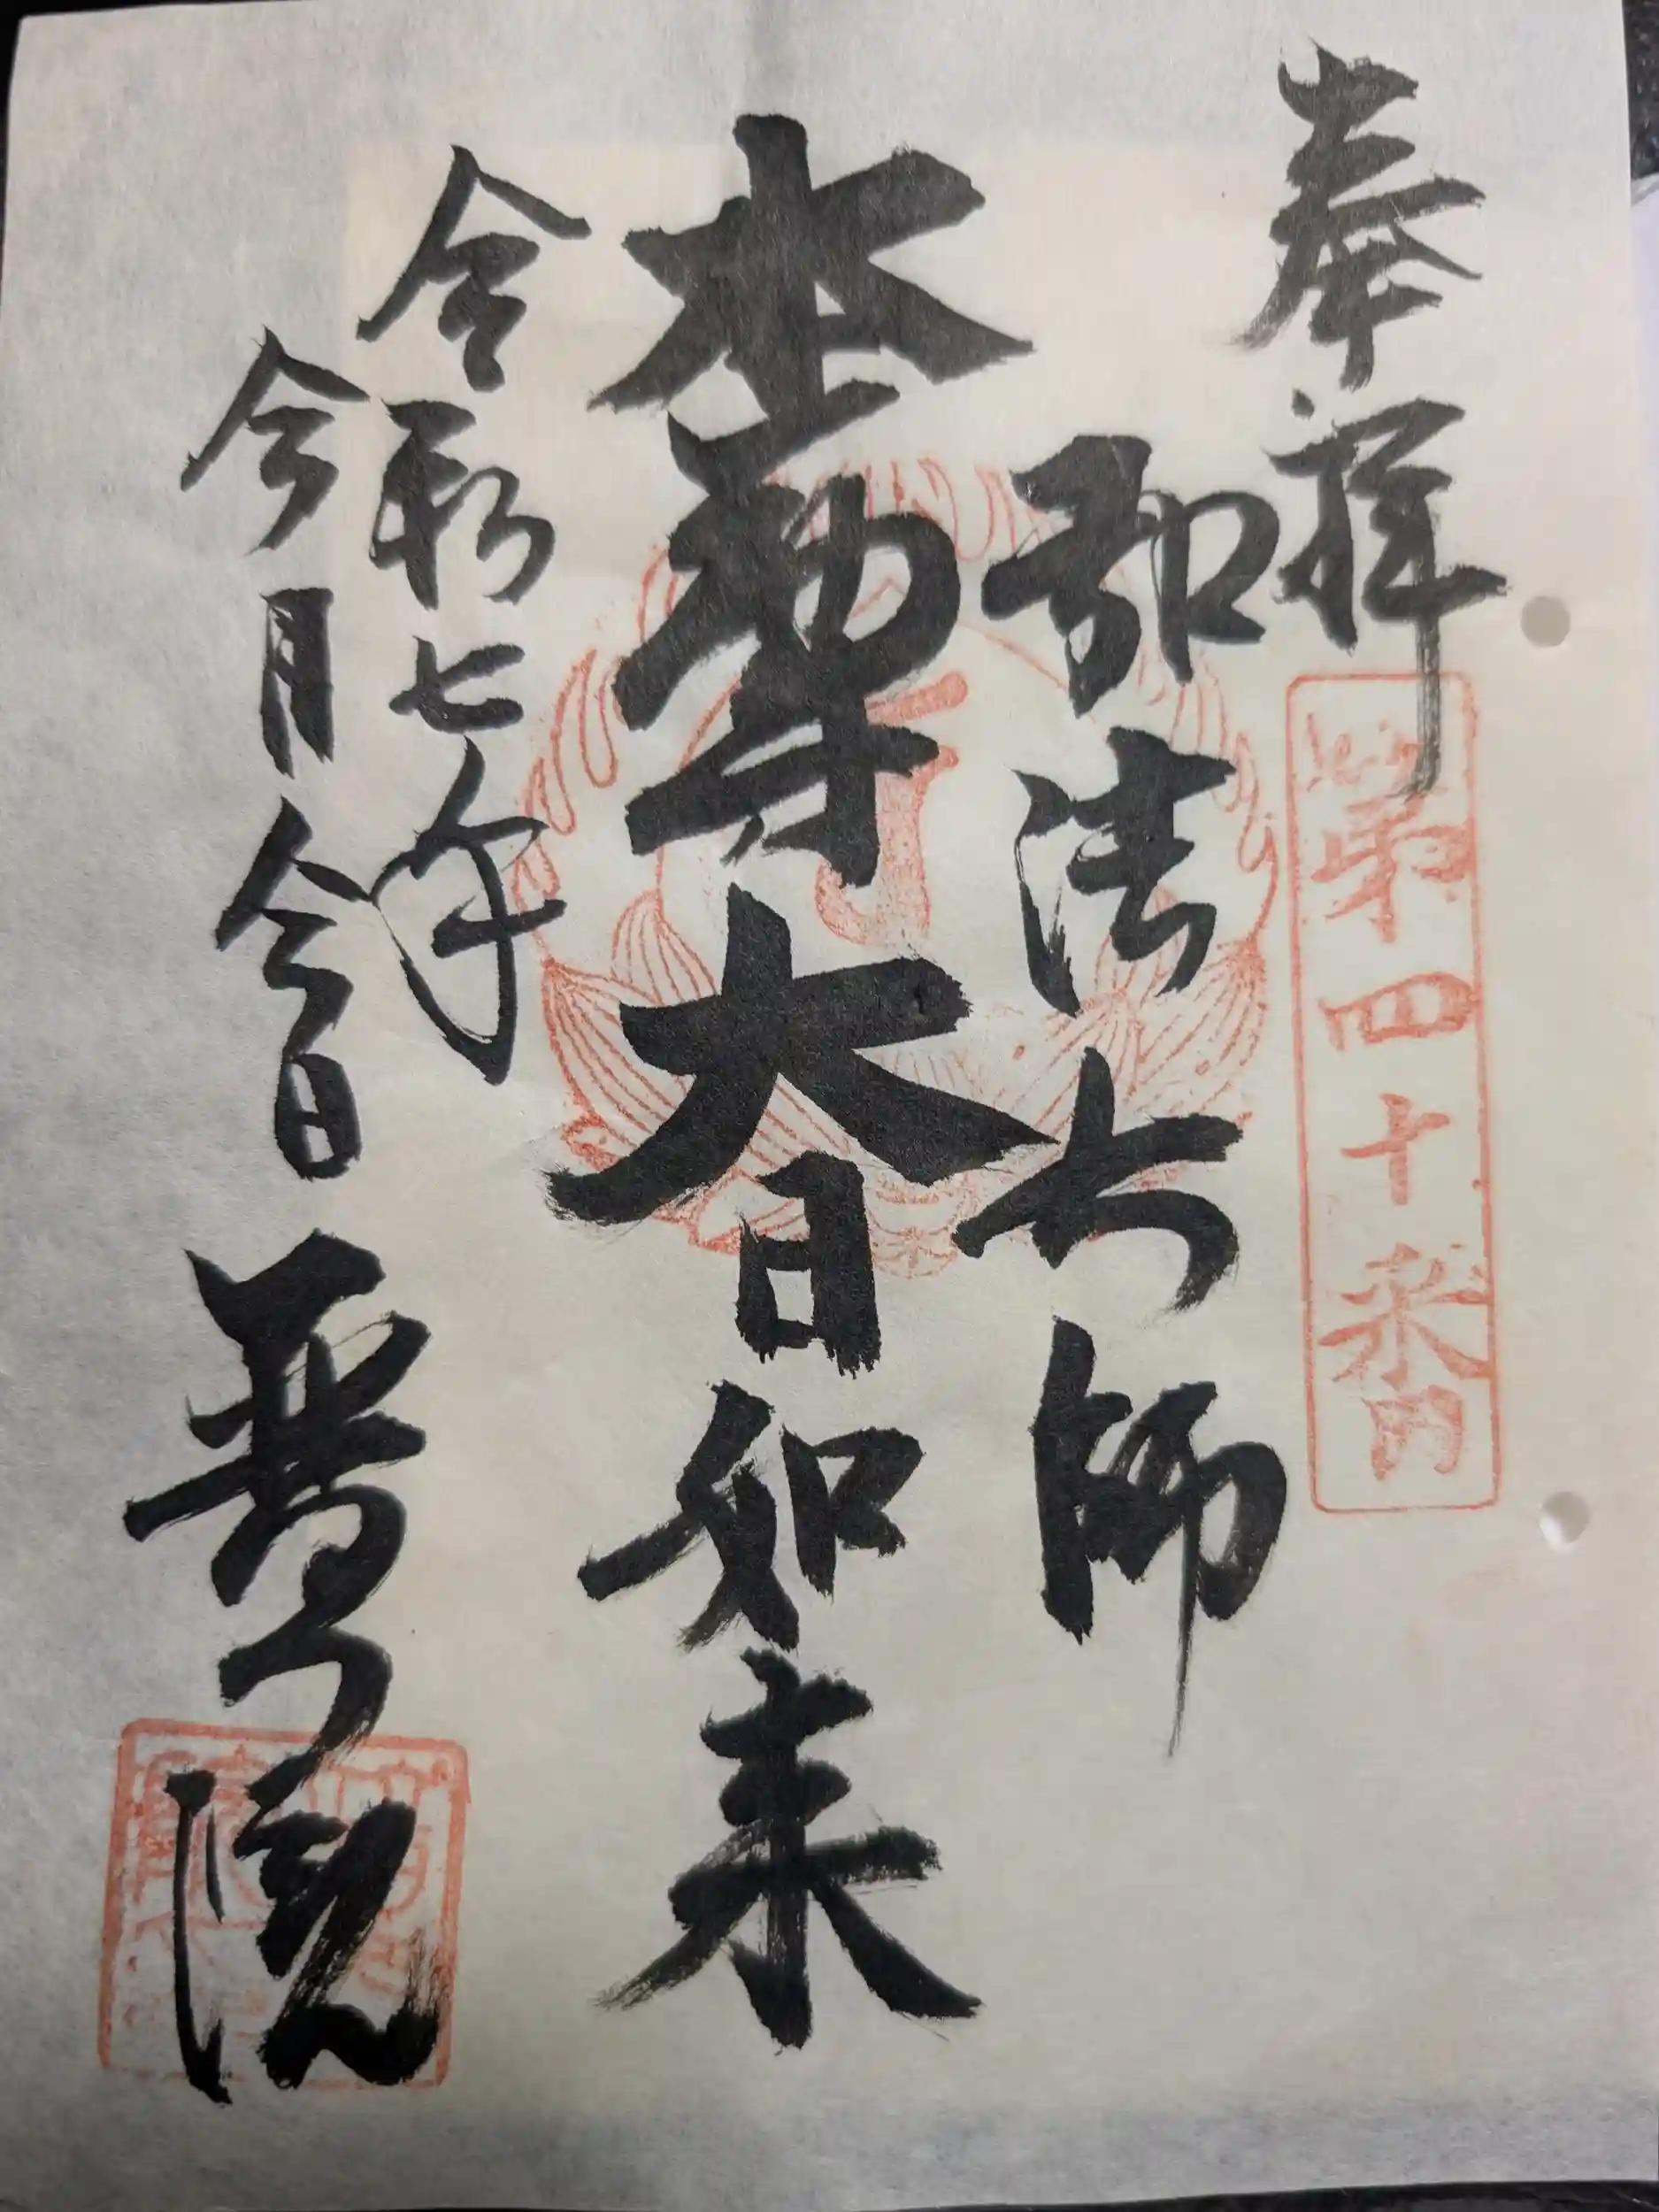 奉拝
第四十番
弘法大師
本尊大日如来
令和七年
今月今日
普門院